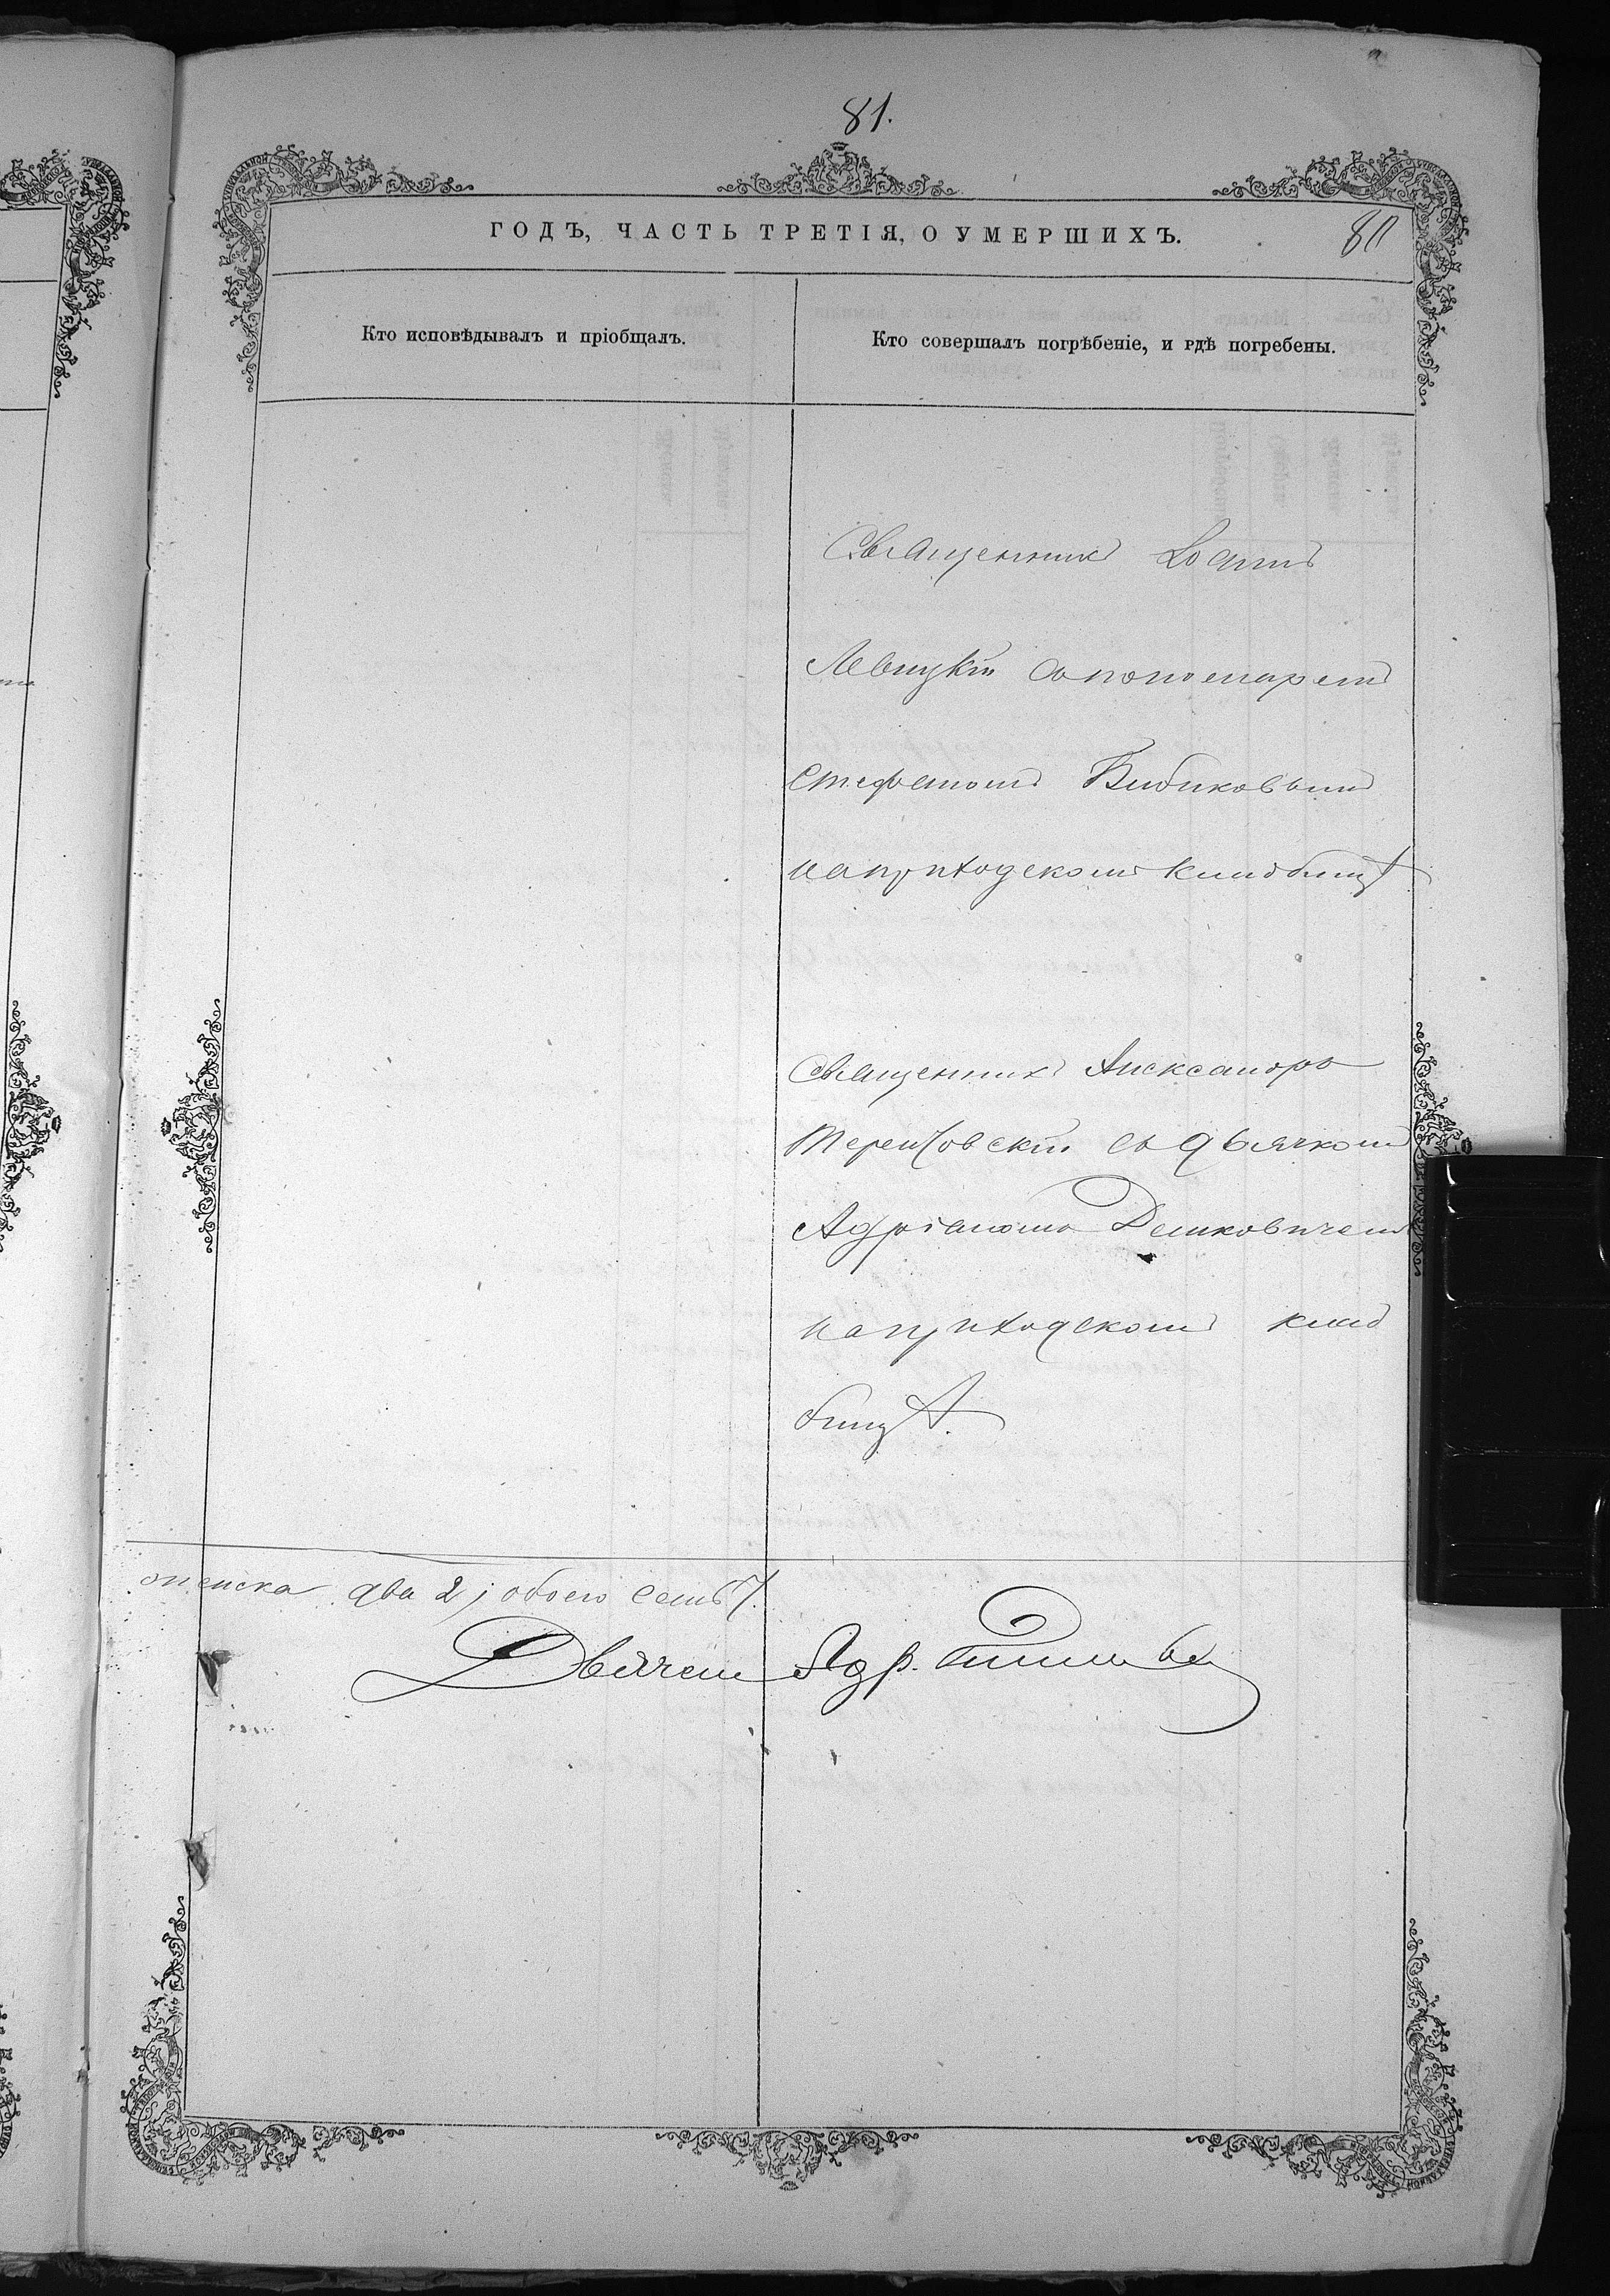 81.
ГОДЪ, ЧАСТЬ ТРЕТІЯ, О УМЕРШИХЪ.
80
Кто исповѣдывалъ и пріобщалъ.
Кто совершалъ погрѣбеніе, и гдѣ погребены.
Священникъ Іоаннъ
Левицкій съ пономаремъ
Стефаномъ Бибиковымъ
на приходскомъ кладбищѣ
Священникъ Александръ
съ дьячкомъ
Адріаномъ Демковичемъ
на приходскомъ клад
бищѣ.
женска два 2, обоего семь 7.